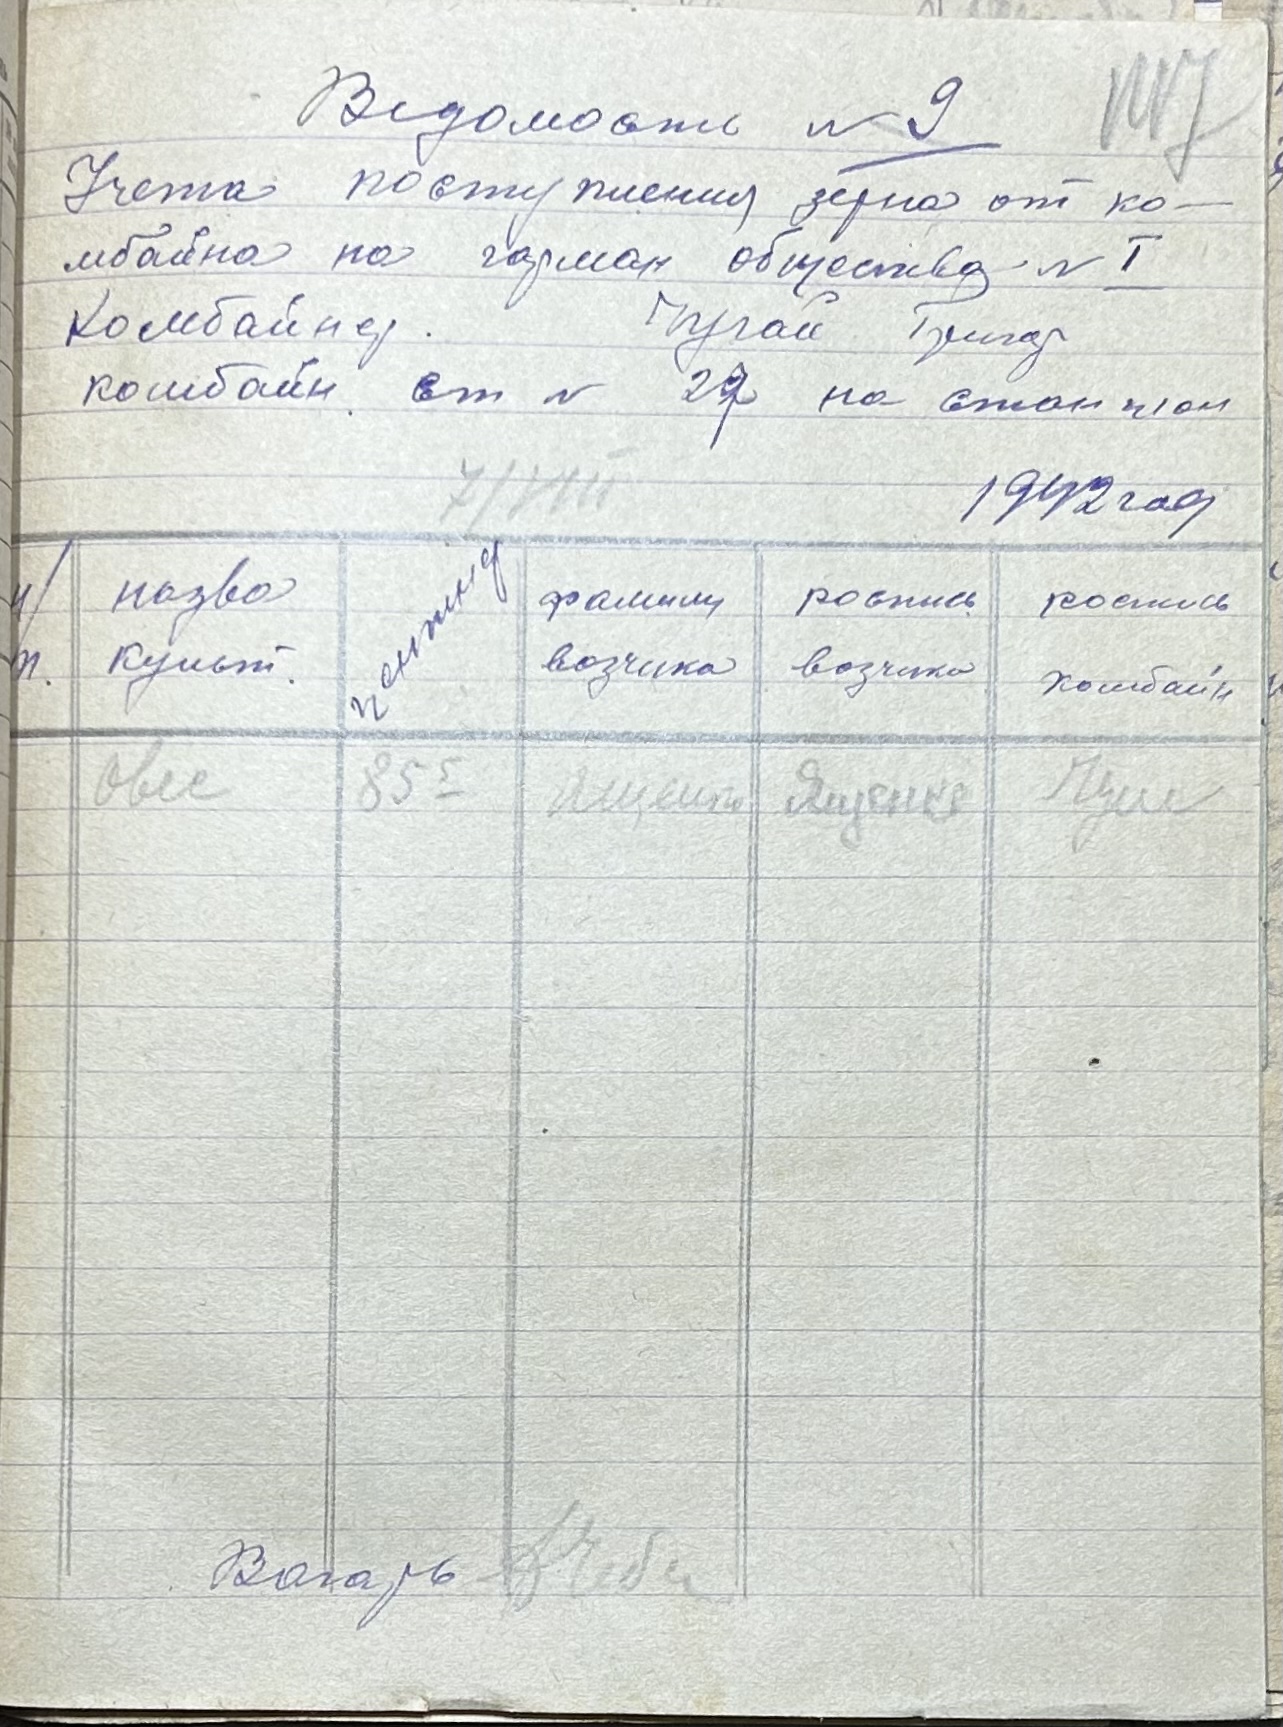 Ведомость № 9
Учета поступления зерна от ко-
мбайна на гарман общества № I
Комбайнер. Чугай Григор
комбайн ст № 27 на станцион
7/VIII 1942 год
п/п. назва культ. центнер фамилия возчика роспись возчика роспись комбайн
овес 85 Ященко Ященко
Вагарь